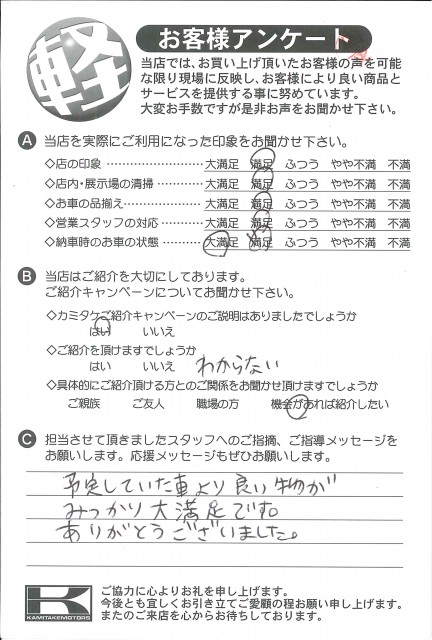 軽
お客様アンケート
当店では、お買い上げ頂いたお客様の声を可能
な限り現場に反映し、お客様により良い商品と
サービスを提供する事に努めています。
大変お手数ですが是非お声をお聞かせ下さい。
A 当店を実際にご利用になった印象をお聞かせ下さい。
◇店の印象 ………………… 大満足 満足 ふつう やや不満 不満
◇店内・展示場の清掃 ………… 大満足 満足 ふつう やや不満 不満
◇お車の品揃え ……………… 大満足 満足 ふつう やや不満 不満
◇営業スタッフの対応 ………… 大満足 満足 ふつう やや不満 不満
◇納車時のお車の状態 ………… 大満足 満足 ふつう やや不満 不満
B 当店はご紹介を大切にしております。
ご紹介キャンペーンについてお聞かせ下さい。
◇カミタケご紹介キャンペーンのご説明はありましたでしょうか
はい いいえ
◇ご紹介を頂けますでしょうか
はい いいえ わからない
◇具体的にご紹介頂ける方とのご関係をお聞かせ頂けますでしょうか
ご親族 ご友人 職場の方 機会があれば紹介したい
C 担当させて頂きましたスタッフへのご指摘、ご指導メッセージを
お願いします。応援メッセージもぜひお願いします。
予定していた車より良い物が
みつかり大満足です。
ありがとうございました。
K
KAMITAKEMOTORS
ご協力に心よりお礼を申し上げます。
今後とも宜しくお引き立てご愛顧の程お願い申し上げます。
またのご来店を心からお待ちしております。